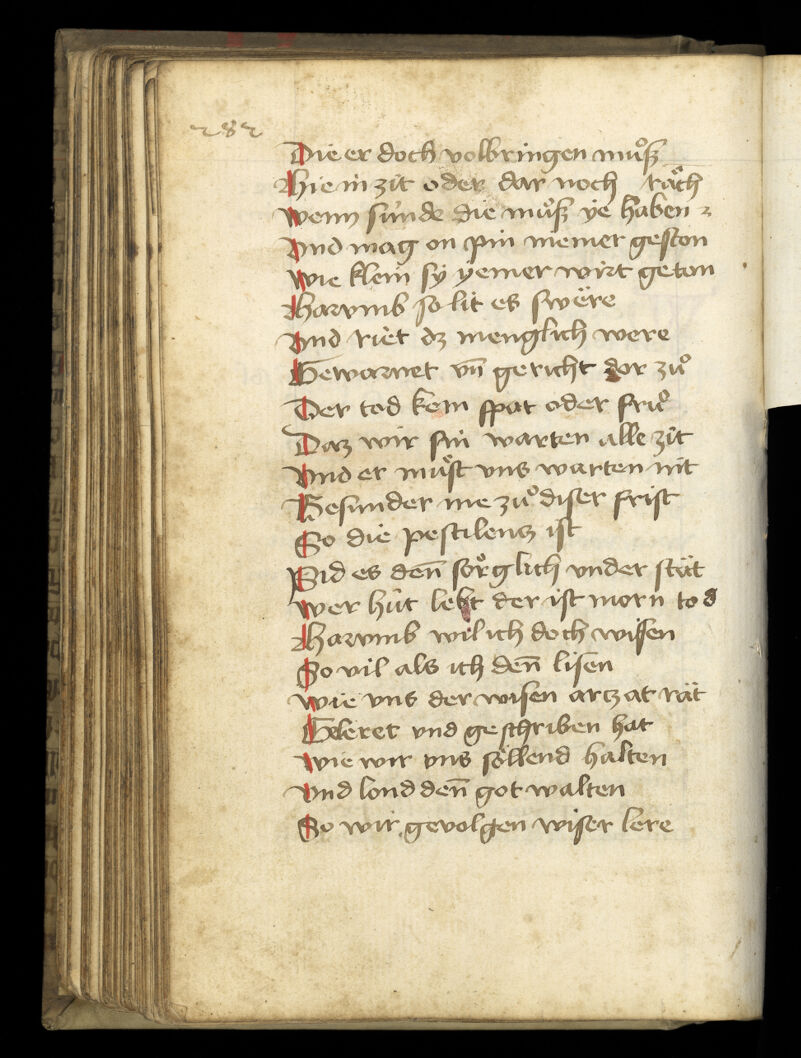 282
Die er doch volbringen muͦß
Hie in zit oder dar noch räch
Wenn sünde die muͦß ye haben
Vnd mag on pin niemer geston
Wie klein sy yemer wirt geton
Harumb so lit es swëre
Vnd riet dz menglich were
Gewarnet vn̄ gericht dor zuͦ
Der tod kem spat oder fruͦ
Daz wir sin warten alle zit
Vnd er muͤst vns warten nit
Besunder me zuͦ diser frist
So die pestilentz ist
Sid es den̄ sorglich vnder stät
Wer hüt lebt der ist morn tod
Harumb wil ich doch wisen
So vil als ich den̄ lisen
Wie vns der wisen artzat rät
Geleret vnd geschriben hat
Wie wir vns söllend halten
Vnd lond den̄ got walten
So wir gevolgen wiser lere